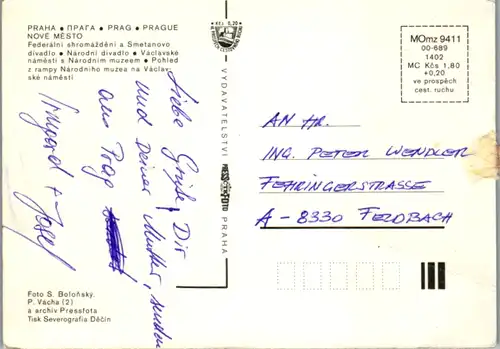 PRAHA • ПРАГА • PRAG • PRAGUE
NOVÉ MĚSTO
Federální shromáždění a Smetanovo
divadlo • Národní divadlo • Václavské
náměstí s Národním muzeem • Pohled
z rampy Národního muzea na Václav-
ské náměstí
Kčs 0,20
Liebe Grüße Dir
und Deiner Mutter, senden
aus Prag
Irmgard + Josef
Foto S. Boloňský,
P. Vácha (2)
a archiv Pressfota
Tisk Severografia Děčín
VYDAVATELSTVÍ PRESSFOTO PRAHA
MOmz 9411
00-689
1402
MC Kčs 1,80
+0,20
ve prospěch
cest. ruchu
AN HR.
ING. PETER WENDLER
FEHRINGERSTRASSE
A - 8330 FELDBACH